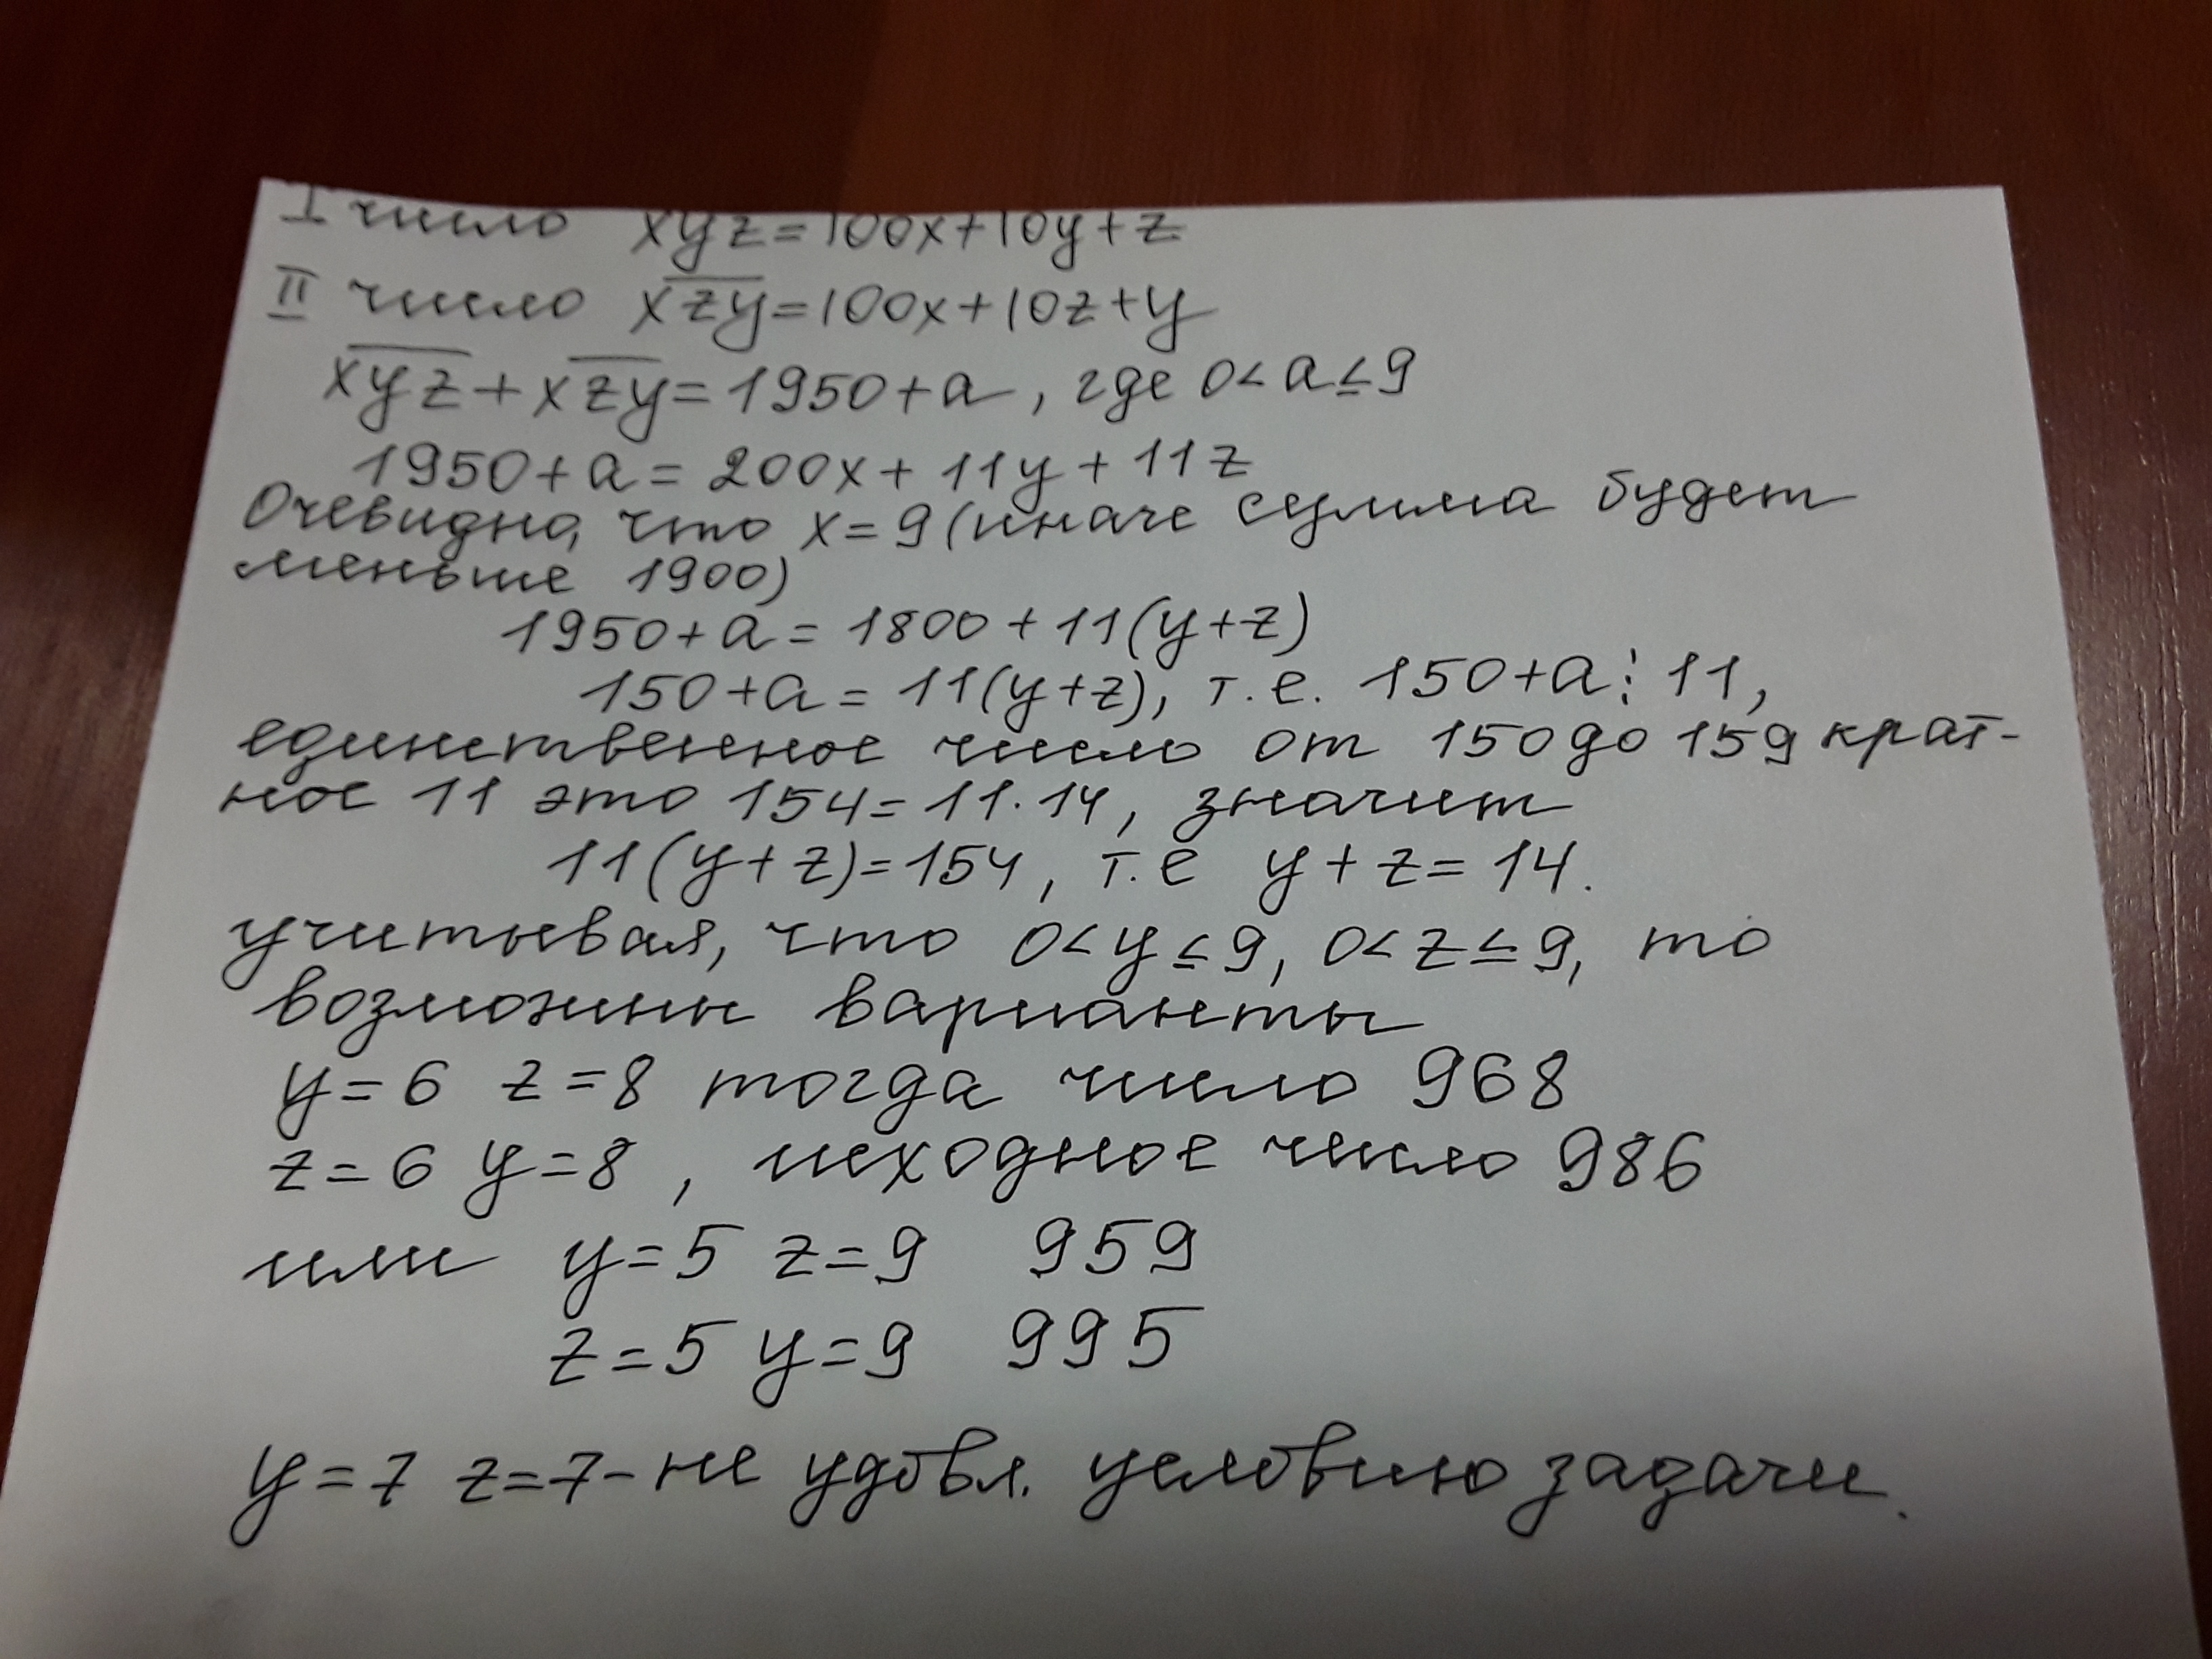 I число xyz=100x+10y+z
II число xzy=100x+10z+y
xyz+xzy=1950+a, где 0<a≤9
1950+a=200x+11y+11z
Очевидно, что x=9(иначе сумма будет
меньше 1900)
1950+a=1800+11(y+z)
150+a=11(y+z), т.е. 150+a⋮11,
единственное число от 150 до 159 крат-
ное 11 это 154=11·14, значит
11(y+z)=154, т.е y+z=14.
учитывая, что 0<y≤9, 0<z≤9, то
возможны варианты
y=6 z=8 тогда число 968
z=6 y=8, исходное число 986
или y=5 z=9 959
z=5 y=9 995
y=7 z=7-не удовл. условию задачи.